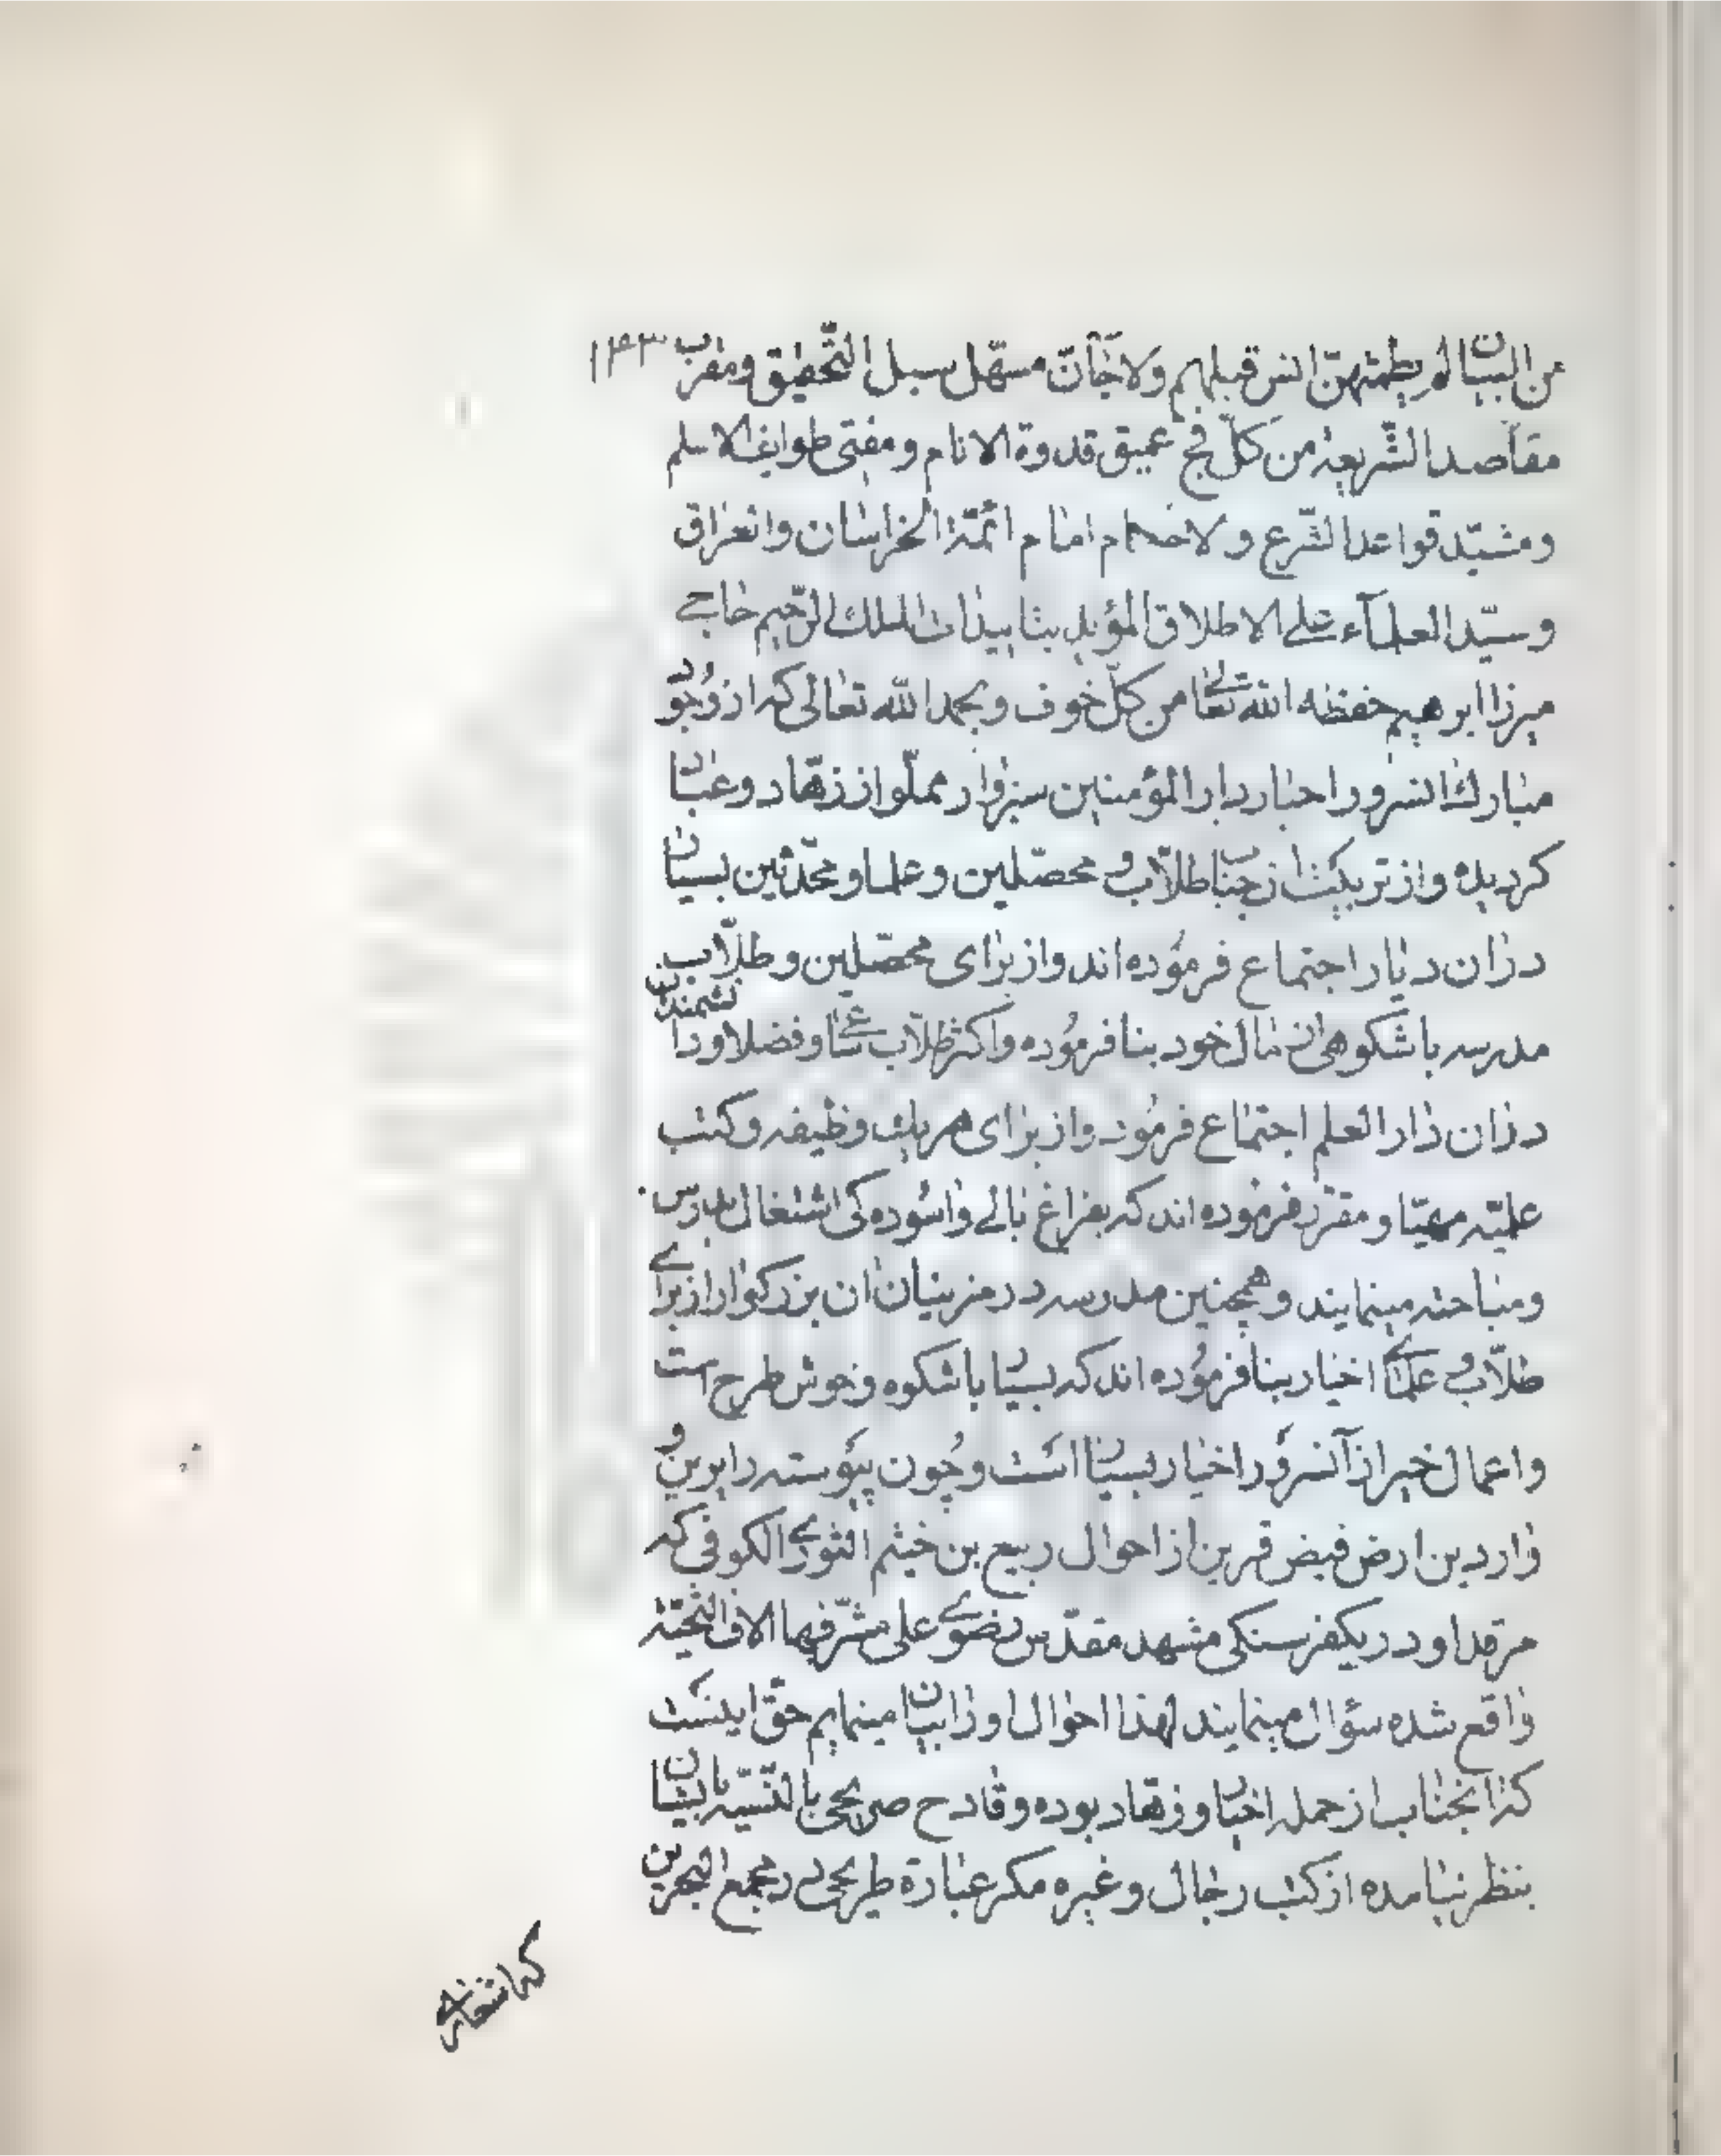 من البیان لم یطمثهنّ انس قبلهم ولا جَآنّ مسهّل سبل التّحقیق ومقرب ۱۴۳
مقاصد الشّریعة من کلّ فجّ عمیق قدوة الانام و مفتی طوایف الاسلم
و مشیّد قواعد الشّرع و لاحکام امام ائمّة الخراسان والعراق
و سیّد العلمآء علی الاطلاق المؤید بتاییدات الملك الرّحیم حاجی
میرزا ابرهیم حفظه الله تعالی من کلّ خوف و بحمد الله تعالی که از وجود
مبارك انسرور احبار دار المؤمنین سبزوار مملّو از زهّاد و عبّاد
کردیده و از تربیت انجناب طلّاب و محصّلین و علما و محدّثین بسیار
دران دیار اجتماع فرموده اند و از برای محصّلین و طلّاب
مدرسه باشکوهی از مال خود بنا فرموده و اکثر طلّاب و فضلا و دانشمندان
دران دار العلم اجتماع فرمود و از برای هر یك وظیفه و کتب
علمیّه مهیّا و مقرّر فرموده اند که بفراغ بالی واسوده کی اشتغال بدرس
و مباحثه مینمایند و همچنین مدرسه در مزینان ان بزرکوار از برای
طلّاب و علمای اخیار بنا فرموده اند که بسیار باشکوه و خوش طرح است
و اعمال خیر از آنسرور اخیار بسیار است و چون پیوسته زایرین و
واردین ارض فیض قرین از احوال ربیع بن خیثم الثوری الکوفی که
مرقد او در یکفرسنکی مشهد مقدّس رضوی علی مشرّفها الاف التّحیّة
واقع شده سؤال مینمایند لهذا احوال او را بیان مینمایم حقّ اینست
که انجناب از جمله اخیار و زهّاد بوده و قادح صریحی بالنّسبه بایشان
بنظر نیامده از کتب رجال و غیره مکر عبارة طریحی در مجمع البحرین